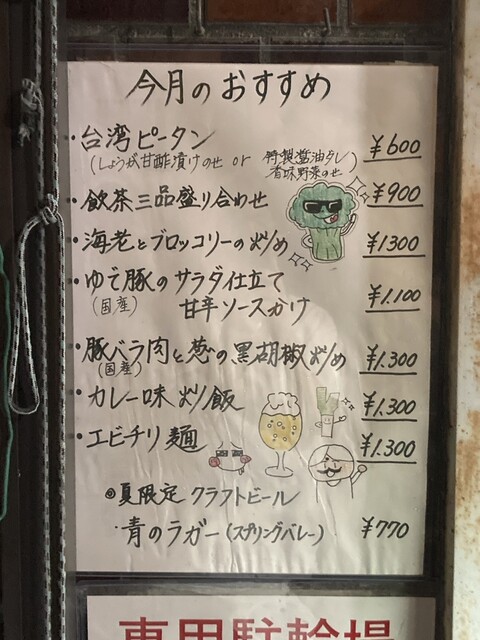 今月のおすすめ
・台湾ピータン ¥600
(しょうが甘酢漬けのせ or 特製醤油タレ
香味野菜のせ)
・飲茶三品盛り合わせ ¥900
・海老とブロッコリーの炒め ¥1300
・ゆで豚のサラダ仕立て ¥1.100
(国産) 甘辛ソースかけ
・豚バラ肉と葱の黒胡椒炒め ¥1.300
(国産)
・カレー味炒飯 ¥1.300
・エビチリ麺 ¥1.300
◎夏限定 クラフトビール
・青のラガー(スプリングバレー) ¥770
専用駐輪場